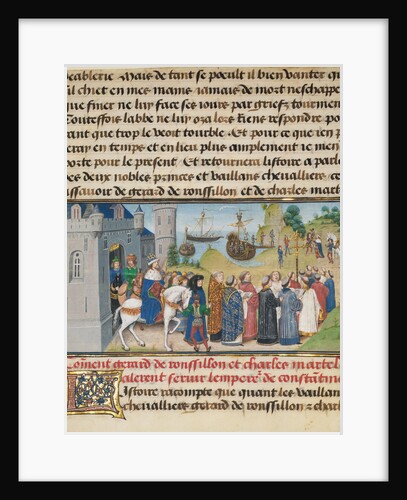 Mais de tant se poeult il bien vanter qu
il chiet en mes mains iamais de mort neschappe
que finer ne luy face ses iours par griefz tourmen
Toutesfois labbe ne luy oza lors riens respondre po
ant que trop le veoit tourble . Et pour ce que ien p
eray en temps et en lieu plus amplement ie men
orte pour le present . Et retournera listoire a parl
es deux nobles princes et vaillans chevalliers . ce
ssavoir de gerard de roussillon et de charles mart
Coment gerard de roussillon et charles martel
alerent servir lempereur de constantin
Listoire racompte que quant les vaillan
chevalliers gerard de roussillon z charl